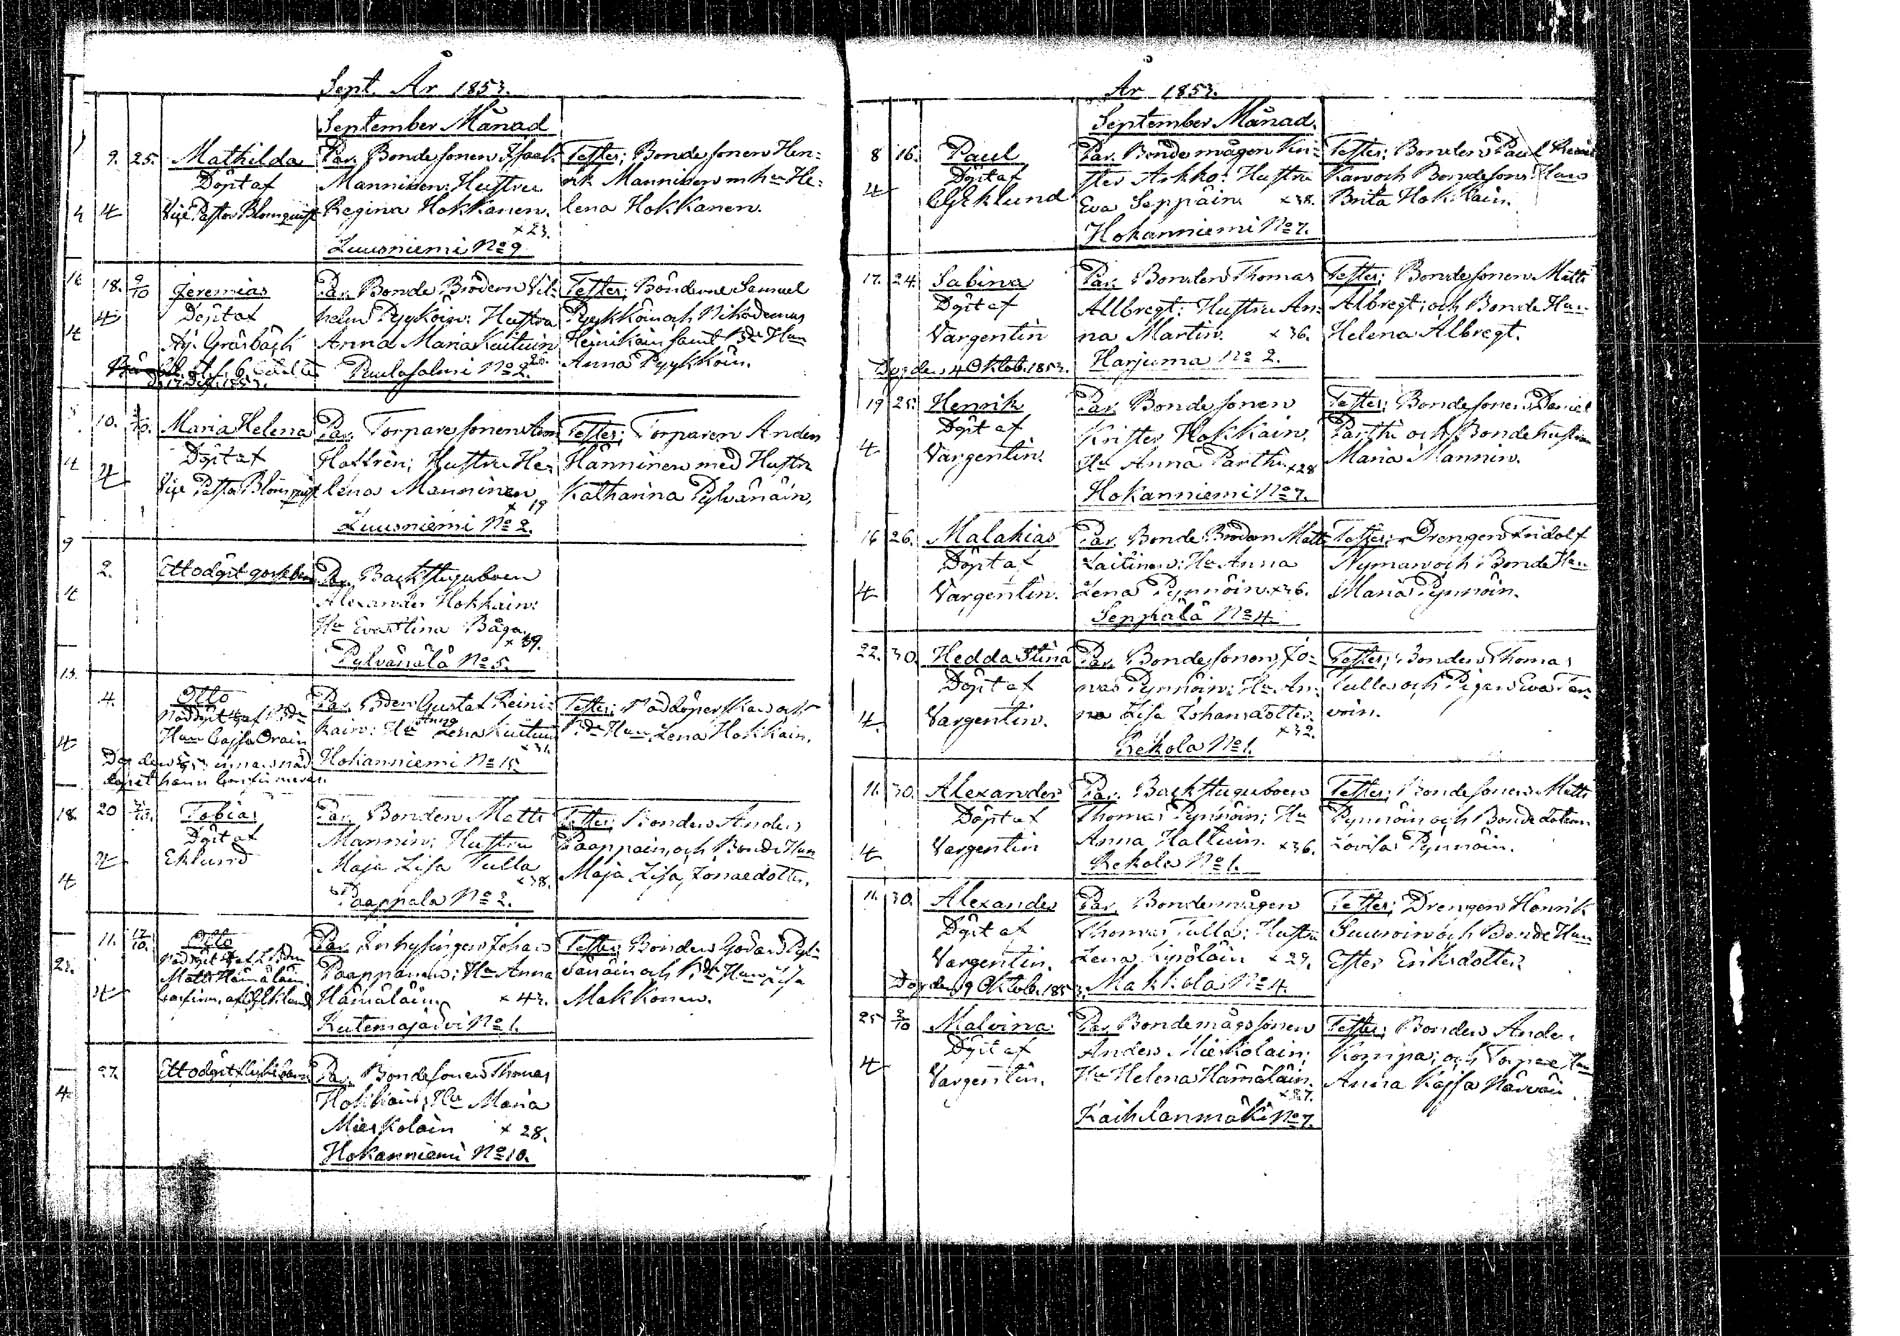 Sept. År 1853.
September Månad
9. 25. Mathilda
Döpt af
Vice Pastor Blomquist
4
Par. Bondesonen Isaak
Manninen; Hustru
Regina Hokkanen.
x 23.
Luusniemi No 9
Testes; Bondesonen Hen-
rik Manninen m hu He-
lena Hokkanen.
18. 9/10 Jeremias
Döpt af
Gråsbäck
Par. Bonde Brodern Vil-
helm Pyyköin; Hustru
Anna Maria Kuituin
Paulasalmi No 2.
Testes; Bönderne Samuel
Pyykköin och Nikodemus
Heinikäin samt Bde Hun
Anna Pyykköin.
10. Maria Helena
Döpt af
Vice Pastor Blomquist
4
Par. Torparesonen
Hustru He-
lena Manninen
x 19
Luusniemi No 2.
Testes; Torparen Anders
Hänninen med Hustru
Katharina Pylvänäin.
2. Ett odöpt gossebarn
Par. Backstuguboen
Alexander Hokkain;
Hu Eva Stina Båga
x 39.
Pylvänälä No 5.
4. Otto
Nöddöpt af Bde
Hun Cajsa Orain
Par. Bden Gustaf Reini-
kain; Hu Anna Lena Kuituin
x 31.
Hokanniemi No 15.
Testes; Nöddöperskan och
Bde Hun Lena Hokkain.
20 Tobias
Döpt af
Eklund
4
Par. Bonden Matts
Mannin; Hustru
Maja Lisa Tulla
x 38.
Paappala No 2.
Testes; Bonden Anders
Paappain och Bonde Hun
Maja Lisa Jonaedotter.
11. 12/10. Otto
Nöddöpt af Bden
Matts Hämäläin.
Confirm. af Eklund
Par. Inhysingen Johan
Paappanen; Hu Anna
Hämäläin x 43.
Kutemajärvi No 1.
Testes; Bonden Godard Pyl-
vänäin och Bde Hun Lisa
Makkonen.
27. Ett odöpt flickebarn
4
Par. Bondesonen Thomas
Hokkain; Hu Maria
Mieskolain x 28.
Hokanniemi No 10.
År 1853.
September Månad.
8 16. Paul
Döpt af
CG Eklund
4
Par. Bonde mågen Kri-
ster Arkko; Hustru
Eva Seppäin. x 38.
Hokanniemi No 7.
Testes; Bonden Paul
och Bondesons Hun
Brita Hokkain.
17. 24. Sabina
Döpt af
Vargentin
Död den 4 Oktob. 1853.
Par. Bonden Thomas
Allbregt; Hustru An-
na Martin. x 36.
Harjuma No 2.
Testes; Bondesonen Matts
Albregt; och Bonde Hun
Helena Albregt.
19 25. Henrik
Döpt af
Vargentin.
4
Par. Bondesonen
Krister Hokkain,
Hu Anna Parthi x 28
Hokanniemi No 7.
Testes; Bondesonen Daniel
Parthi och Bondehustrun
Maria Mannin.
16 26. Malakias
Döpt af
Vargentin.
4
Par. Bonde Brodern Matts
Laitinen; Hu Anna
Lena Pynnöin x 36.
Seppälä No 4
Testes; Drengen Fridolf
Nyman och Bonde Hun
Maria Pynnöin.
22. 30. Hedda Stina
Döpt af
Vargentin.
4
Par. Bondesonen Jo-
nas Pynnöin; Hu An-
na Lisa Johansdotter
x 32.
Rekola No 1.
Testes; Bonden Thomas
Tulla och Pigan Eva Tar-
vain.
11. 30. Alexander
Döpt af
Vargentin
4
Par. Backstuguboen
Thomas Pynnöin; Hu
Anna Hattuin. x 36.
Rekola No 1.
Testes; Bondesonen Matts
Pynnöin och Bonde dottern
Lovisa Pynnöin.
11. 30. Alexander
Döpt af
Vargentin.
Död den 9 Oktob. 1853.
Par. Bondemågen
Thomas Tulla; Hustru
Lena x 29.
Makkola No 4.
Testes; Drengen Henrik
och Bonde Hun
Ester Eriksdotter.
25 2/10 Malvina
Döpt af
Vargentin.
4
Par. Bondemågssonen
Anders Mieskolain;
Hu Helena Hämäläin.
x 27.
Kaihlanmäki No 7.
Testes; Bonden Anders
Kompa; och Torpare Hun
Anna Kajsa Närväi.